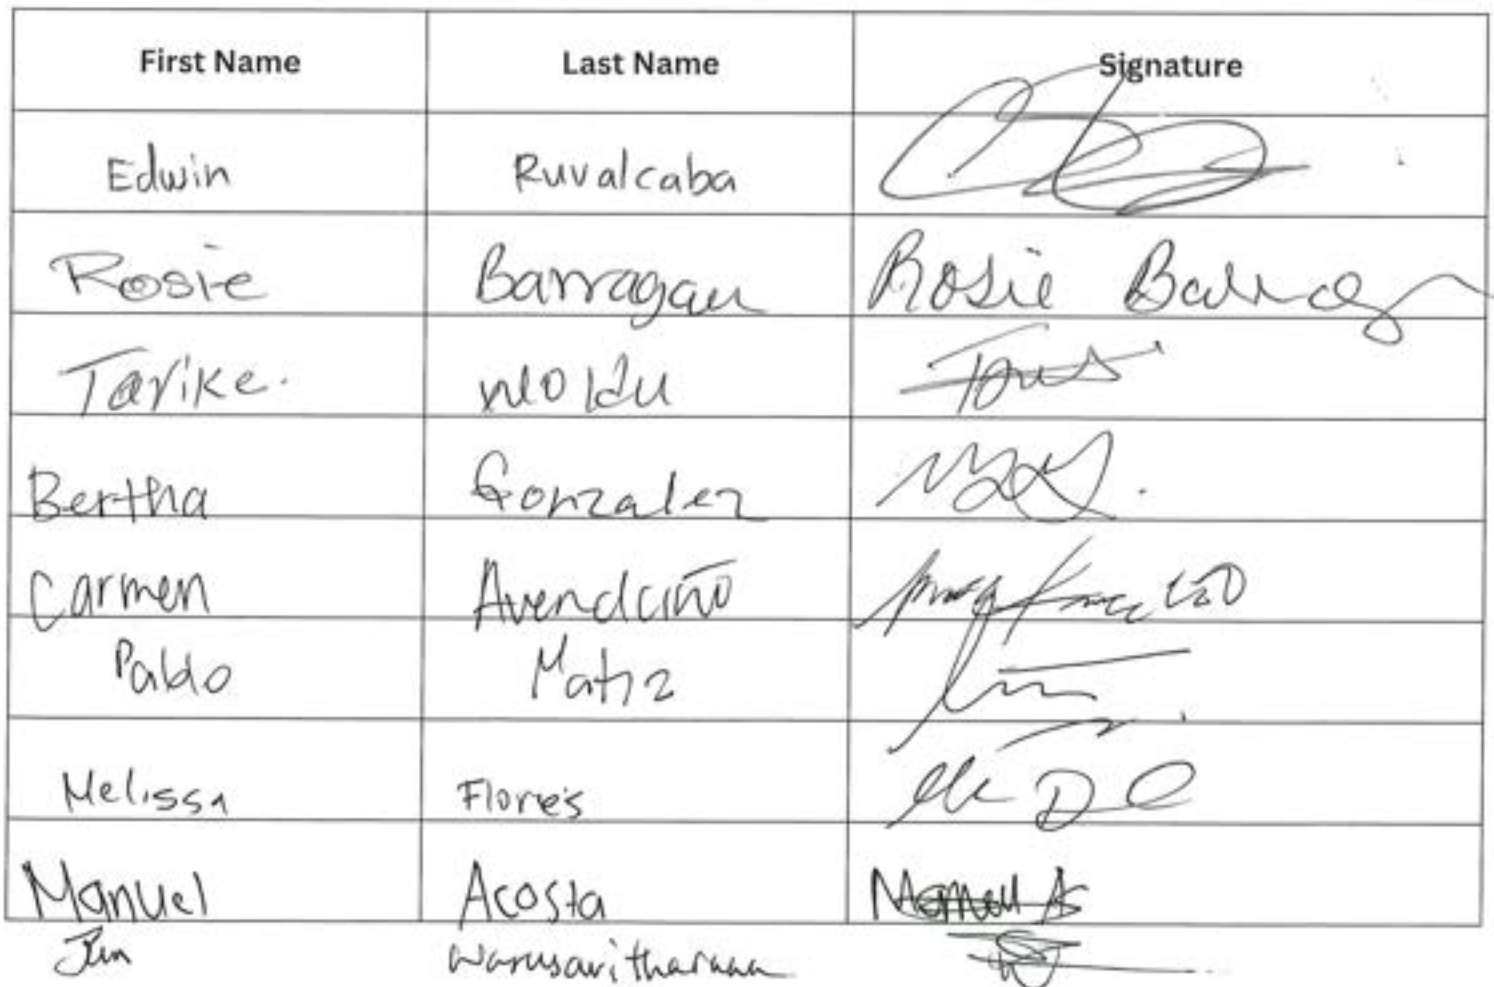 First Name Last Name Signature
Edwin Ruvalcaba
Rosie Barragan Rosie Barrag
Tarike.
Bertha Gonzalez
Carmen Avendaño
Pablo Matiz
Melissa Flores
Manuel Acosta Manuel A
Warusavitharana